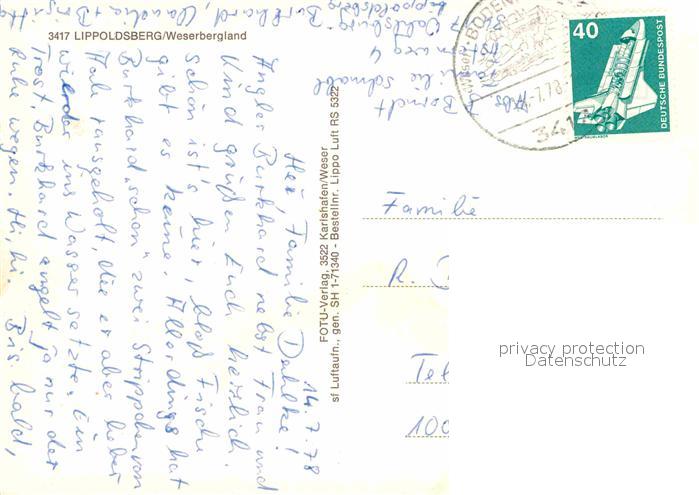 3417 LIPPOLDSBERG/Weserbergland
14.7.78
Hei, Familie Dahlke!
Angler Burkhard nebst Frau und
Kind grüßen Euch herzlich.
Schön ist's hier, bloß Fische
gibt es keine. Allerdings hat
Burkhard schon zwei Strippchen von
Hale rausgeholt, die er aber lieber
wieder ins Wasser setzte. Ein
Trost, Burkhard angelt ja nur der
Ruhe wegen. Hi, hi. Bis bald,
Burkhard, Claudia + Birgit
Abs.
Familie
4
Lippoldsberg
FOTU-Verlag, 3522 Karlshafen/Weser
sf Luftaufn., gen. SH 1-71340 - Bestellnr. Lippo Luft RS 5322
BODENF
.7.78
341
40
DEUTSCHE BUNDESPOST
Familie
R.
Tel
100
privacy protection
Datenschutz